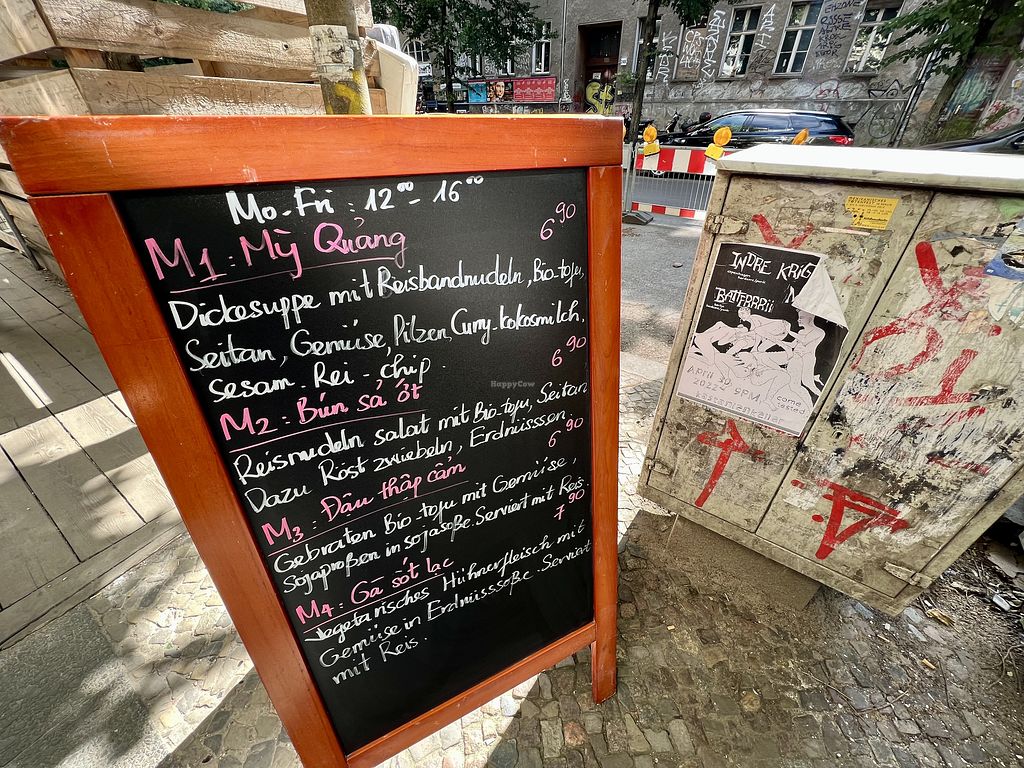 Mo-Fri : 12⁰⁰ - 16⁰⁰
M1 : Mỳ Quảng 6⁹⁰
Dickesuppe mit Reisbandnudeln, Bio-tofu,
Seitan, Gemüse, Pilzen, Curry-kokosmilch,
Sesam - Rei - chip. 6⁹⁰
M2 : Bún sả ớt
Reisnudeln salat mit Bio-tofu, Seitan
Dazu Röst zwiebeln, Erdnüsssen. 6⁹⁰
M3 : Đâu thâp câm
Gebraten Bio-tofu mit Gemüse,
Sojaproßen in sojasoße. Serviert mit Reis. 7⁹⁰
M4 : Gà sốt lạc
Vegetarisches Hühnerfleisch mit
Gemüse in Erdnüsssoße. Serviert
mit Reis.
HappyCow
INDRE KRIG
BATTERRAII
APRIL
2022 9PM
come
tested